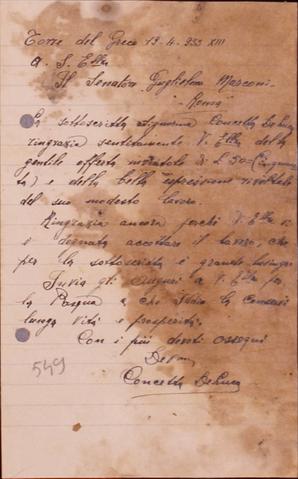 Torre del Greco 19-4-935 XIII
A. S. Ella
Il Senatore Guglielmo Marconi
- Roma -
La sottoscritta Signorina Concetta De Luca
ringrazia sentitamente V. Ella della
gentile offerta inviatale di L 50=(cinquan
ta) e della bella espressione rivoltale
del suo modesto lavoro.
Ringrazia ancora perchè V. Ella si
è degnata accettare il lavoro, che
per la sottoscritta è grande
Invia gli auguri a V. Ella per
la Pasqua e che Iddio la conservi
lunga vita e prosperità.
Con i più devoti ossequi
Dev.ma
Concetta De Luca
549